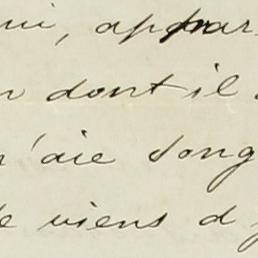 ui, appar
n dont il
n'aie song
de viens d